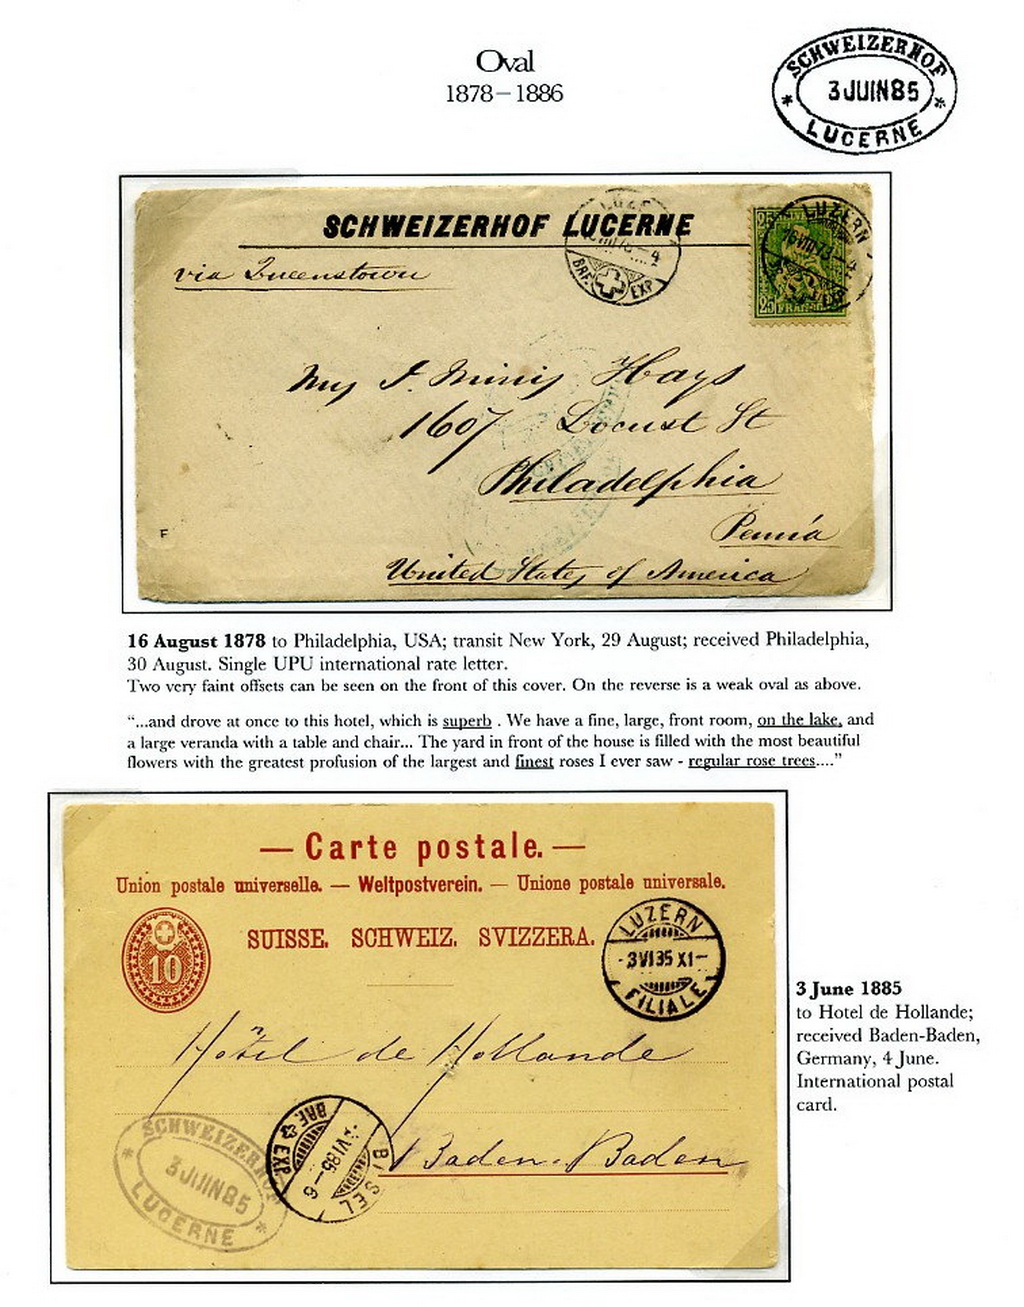 Oval
1878–1886
SCHWEIZERHOF
* 3 JUIN 85 *
LUCERNE
SCHWEIZERHOF LUCERNE
via Queenstown
BRF. EXP.
LUZERN
25 25
Mrs I. Minis Hays
1607 Locust St
Philadelphia
Penn'a
F
United States of America
16 August 1878 to Philadelphia, USA; transit New York, 29 August; received Philadelphia,
30 August. Single UPU international rate letter.
Two very faint offsets can be seen on the front of this cover. On the reverse is a weak oval as above.
“...and drove at once to this hotel, which is superb . We have a fine, large, front room, on the lake, and
a large veranda with a table and chair... The yard in front of the house is filled with the most beautiful
flowers with the greatest profusion of the largest and finest roses I ever saw - regular rose trees....”
— Carte postale. —
Union postale universelle. — Weltpostverein. — Unione postale universale.
SUISSE. SCHWEIZ. SVIZZERA.
10
LUZERN
-3 VI 85 XI-
FILIALE
3 June 1885
to Hotel de Hollande;
received Baden-Baden,
Germany, 4 June.
International postal
card.
Hôtel de Hollande
BASEL
VI 85 – 6
BRF. EXP.
Baden-Baden
SCHWEIZERHOF
* 3 JUIN 85 *
LUCERNE